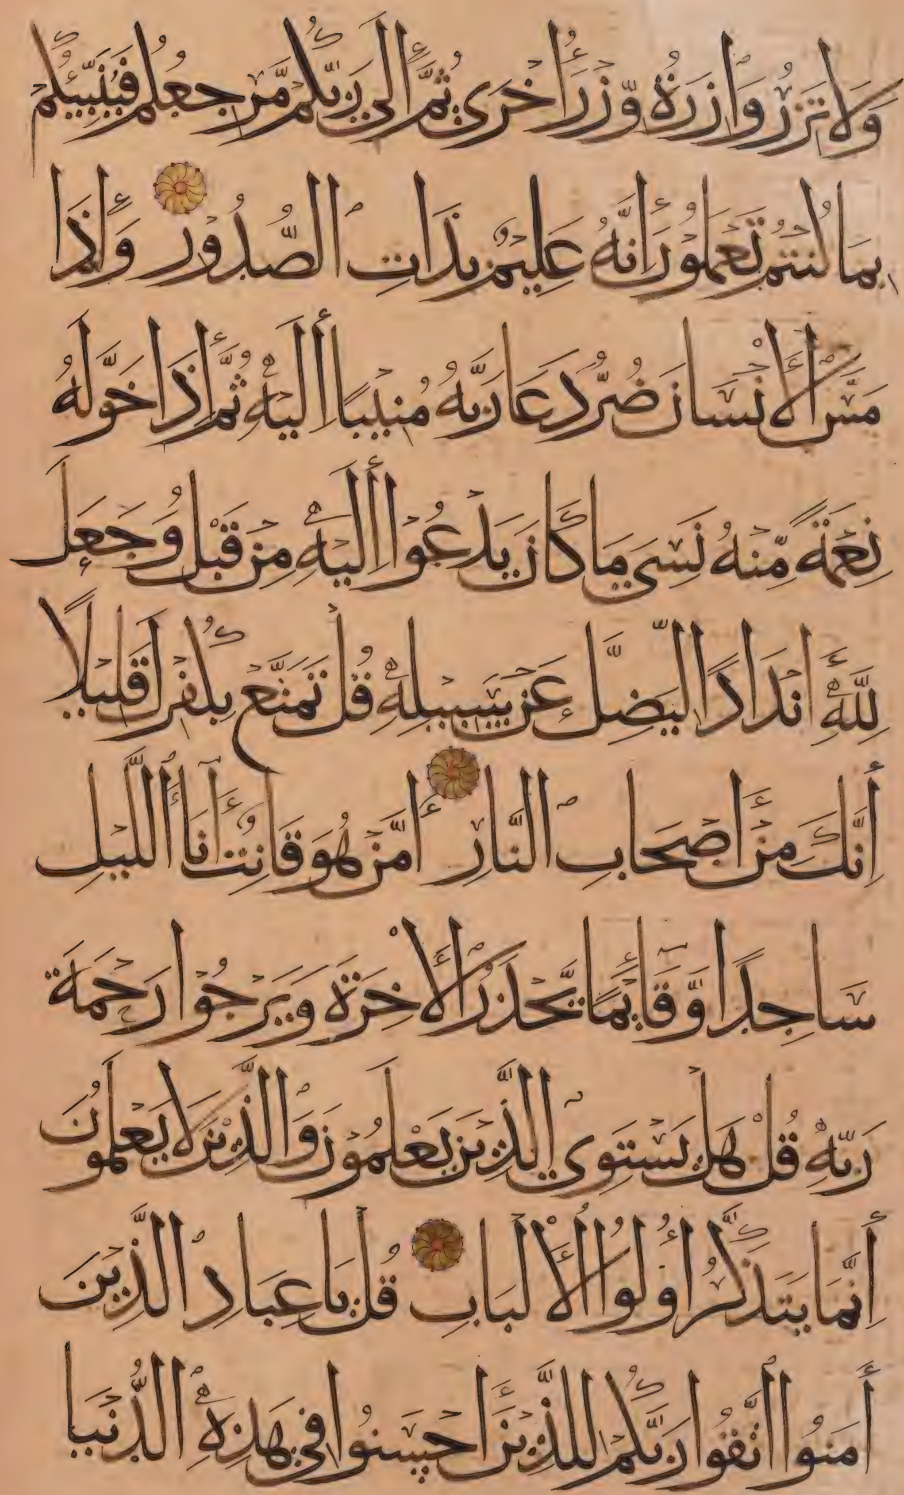 وَلَا تَزِرُ وَازِرَةٌ وِّزْرَ اُخْرَى ثُمَّ اِلَى رَبِّكُمْ مَّرْجِعُكُمْ فَيُنَبِّئُكُمْ
بِمَا كُنْتُمْ تَعْمَلُونَ اِنَّهُ عَلِيمٌ بِذَاتِ الصُّدُورِ وَاِذَا
مَسَّ الْاِنْسَانَ ضُرٌّ دَعَا رَبَّهُ مُنِيبًا اِلَيْهِ ثُمَّ اِذَا خَوَّلَهُ
نِعْمَةً مِّنْهُ نَسِيَ مَا كَانَ يَدْعُوا اِلَيْهِ مِنْ قَبْلُ وَجَعَلَ
لِلَّهِ اَنْدَادًا لِيُضِلَّ عَنْ سَبِيلِهِ قُلْ تَمَتَّعْ بِكُفْرِكَ قَلِيلًا
اِنَّكَ مِنْ اَصْحَابِ النَّارِ اَمَّنْ هُوَ قَانِتٌ آنَاءَ اللَّيْلِ
سَاجِدًا وَّقَائِمًا يَّحْذَرُ الْآخِرَةَ وَيَرْجُوا رَحْمَةَ
رَبِّهِ قُلْ هَلْ يَسْتَوِي الَّذِينَ يَعْلَمُونَ وَالَّذِينَ لَا يَعْلَمُونَ
اِنَّمَا يَتَذَكَّرُ اُولُوا الْاَلْبَابِ قُلْ يَا عِبَادِ الَّذِينَ
اٰمَنُوا اتَّقُوا رَبَّكُمْ لِلَّذِينَ اَحْسَنُوا فِي هَذِهِ الدُّنْيَا